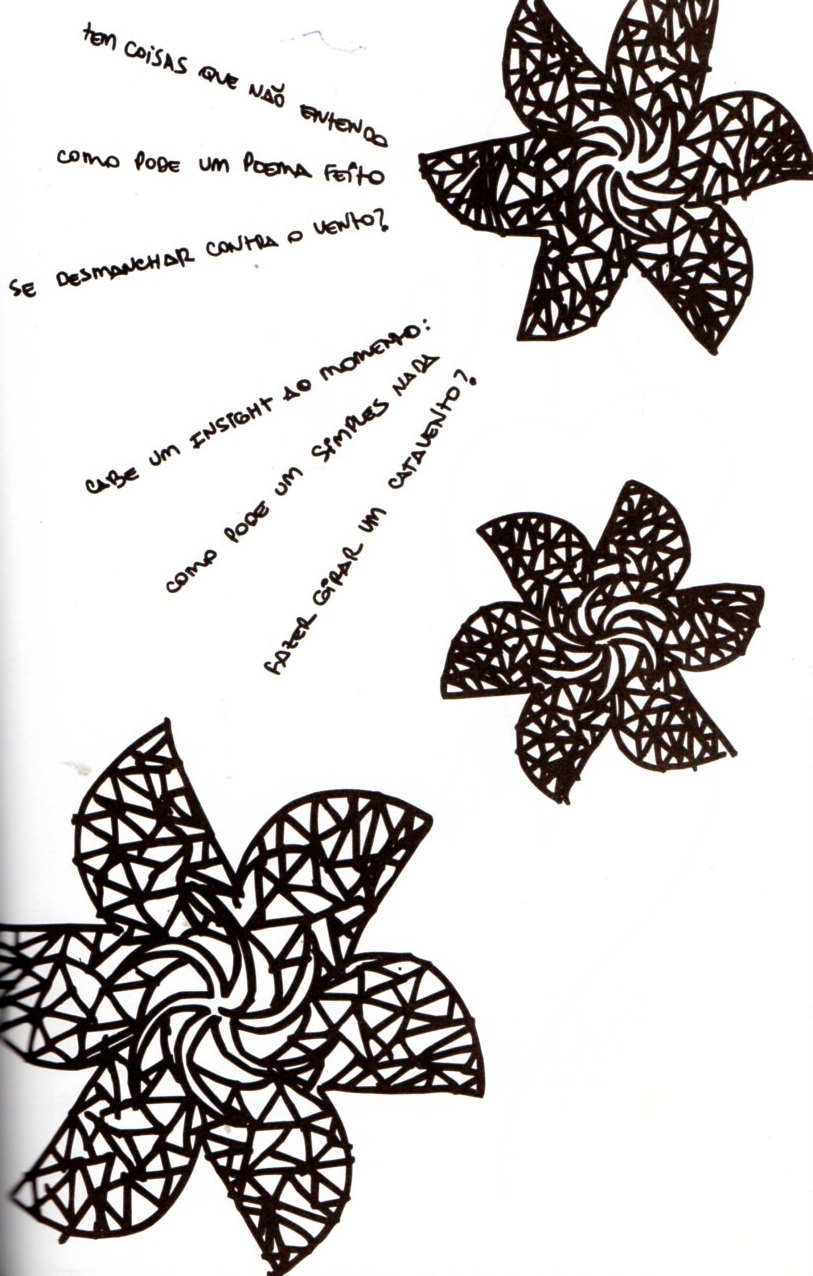 TEM COISAS QUE NÃO ENTENDO
COMO PODE UM POEMA FEITO
SE DESMANCHAR CONTRA O VENTO?
CABE UM INSIGHT AO MOMENTO:
COMO PODE UM SIMPLES NADA
FAZER GIRAR UM CATAVENTO?